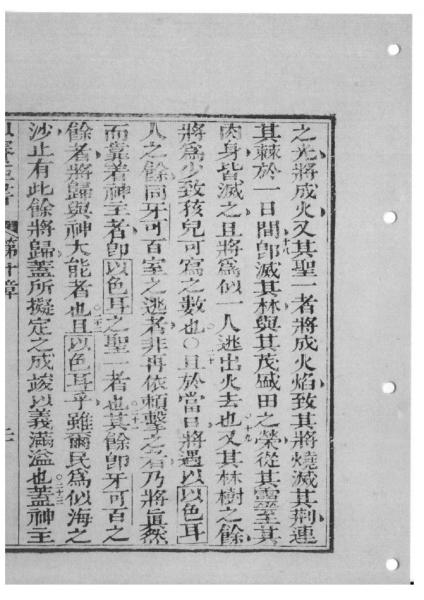 之光將成火又其聖一者將成火焰致其將燒滅其荆連
其棘於一日間卽滅其林與其茂盛田之榮從其靈至其
肉身皆滅之且將爲似一人逃出火去也又其林樹之餘
將爲少致孩兒可寫之數也○且於當日將遇以以色耳
人之餘同牙可百室之逃者非再依賴擊之者乃將眞然
而靠着神主者卽以色耳之聖一者也其餘卽牙可百之
餘者將歸與神大能者也且以色耳乎雖爾民爲似海之
沙止有此餘將歸蓋所擬定之成竣以義滿溢也蓋神主
第十章